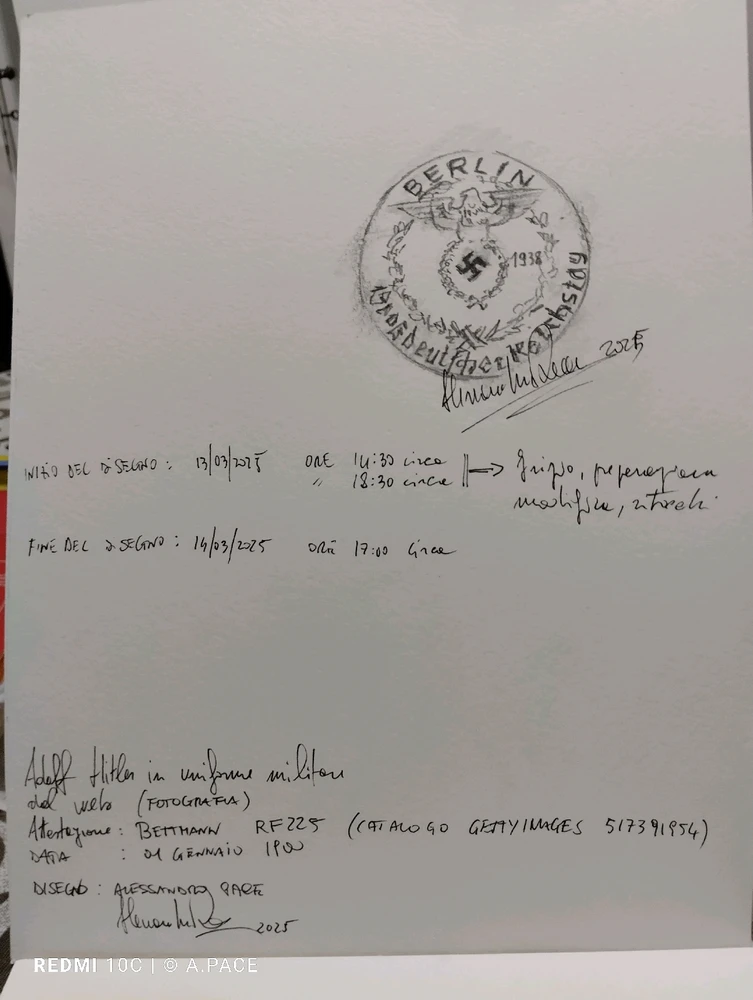 BERLIN
1938
Grossdeutscher Reichstag
2025
INIZIO DEL DISEGNO : 13/03/2025 ORE 14:30 circa
" 18:30 circa
modifica, ritocchi
FINE DEL DISEGNO : 14/03/2025 ORE 17:00 circa
Adolf Hitler in uniforme militare
dal web (FOTOGRAFIA)
Attestazione : BETTMANN RF 225 (CATALOGO GETTYIMAGES 517391954)
DATA : 01 GENNAIO 1900
DISEGNO : ALESSANDRO PACE
2025
REDMI 10C | © A.PACE